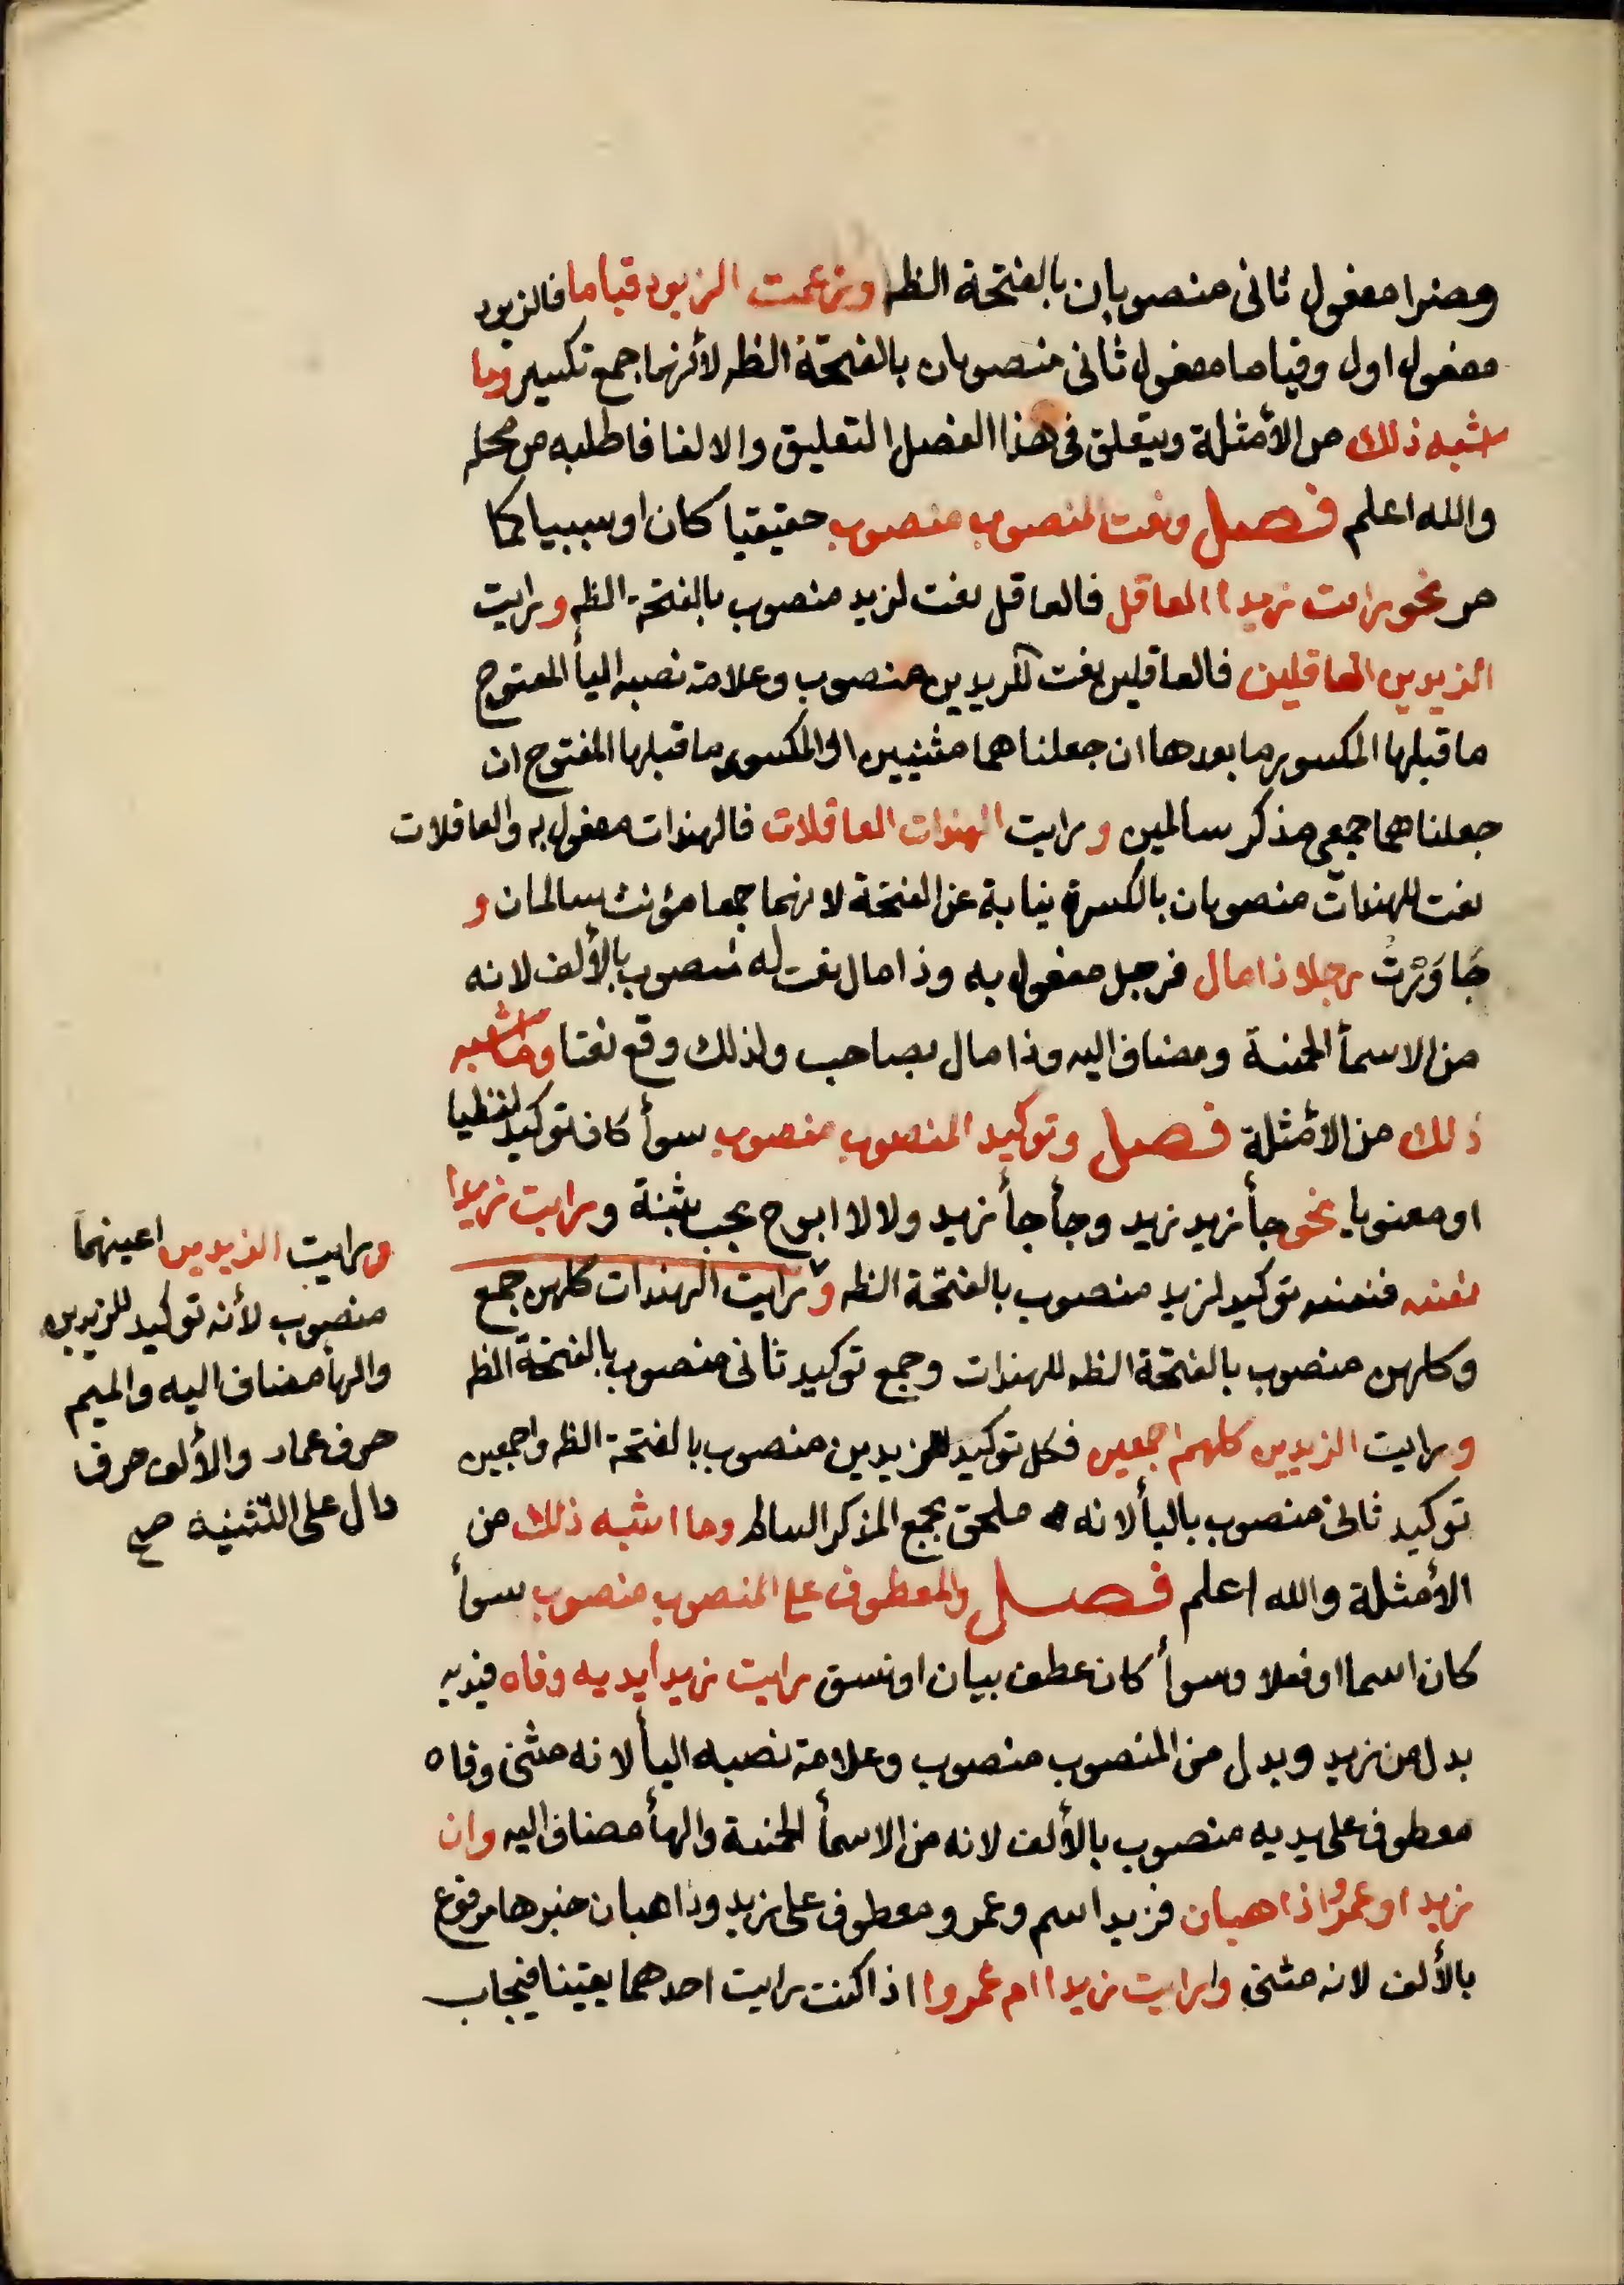 ومضرا مفعول ثانى منصوبان بالفتحة الظه وزعمت الزيود قياما فالزيود
مفعول اول وقياما مفعول ثانى منصوبان بالفتحة الظه لأنهما جمع تكسير وما
اشبه ذلك من الأمثلة ويتعلق فى هذا الفصل التعليق والالغا فاطلبه من محله
والله اعلم فصل ونعت المنصوب منصوب حقيقيا كان او سببيا كما
مر نحو رايت زيدا العاقل فالعاقل نعت لزيد منصوب بالفتحة الظه ورايت
الزيدين العاقلين فالعاقلين نعت للزيدين منصوب وعلامة نصبه اليأ المفتوح
ما قبلها المكسور ما بعدها ان جعلناهما مثنيين او المكسور ما قبلها المفتوح ان
جعلناهما جمعي مذكر سالمين ورايت الهندات العاقلات فالهندات مفعول به والعاقلات
نعت للهندات منصوبان بالكسرة نيابة عن الفتحة لانهما جمعا مؤنث سالمان و
جَاوَزْتُ رجلا ذا مال فرجل مفعول به وذا مال نعت له منصوب بالألف لانه
من الاسمأ الخمسة ومضاف اليه وذا مال بصاحب ولذلك وقع نعتا وما اشبه
ذلك من الأمثلة فصل وتوكيد المنصوب منصوب سوأ كان توكيد لفظيا
او معنويا نحو جأ زيد زيد وجأ جأ زيد ولا لا ابوح بحب بثنة ورايت زيدا
نفسه فنفسه توكيد لزيد منصوب بالفتحة الظه ورايت الهندات كلهن جمع
وكلهن منصوب بالفتحة الظه للهندات وجمع توكيد ثانى منصوب بالفتحة الظه
ورايت الزيدين كلهم اجمعين فكل توكيد للزيدين منصوب بالفتحة الظه واجمعين
توكيد ثانى منصوب باليأ لانه ملحق بجمع المذكر السالم وما اشبه ذلك من
الأمثلة والله اعلم فصل والمعطوف على المنصوب منصوب سوأ
كان اسما او فعلا وسوأ كان عطف بيان او نسق رايت زيدا يديه وفاه فيديه
بدل من زيد وبدل من المنصوب منصوب وعلامة نصبه اليأ لانه مثنى وفاه
معطوف على يديه منصوب بالألف لانه من الاسمأ الخمسة والهأ مضاف اليه وان
زيدا وعمروا ذاهبان فزيد اسم وعمرو معطوف على زيد وذاهبان خبرها مرفوع
بالألف لانه مثنى وارايت زيدا ام عمروا اذا كنت رايت احدهما يقينا فيجاب
ورايت الزيدين اعينهما
منصوب لأنه توكيد للزيدين
والهأ مضاف اليه والميم
حرف عماد والألف حرف
دال على التثنية صح